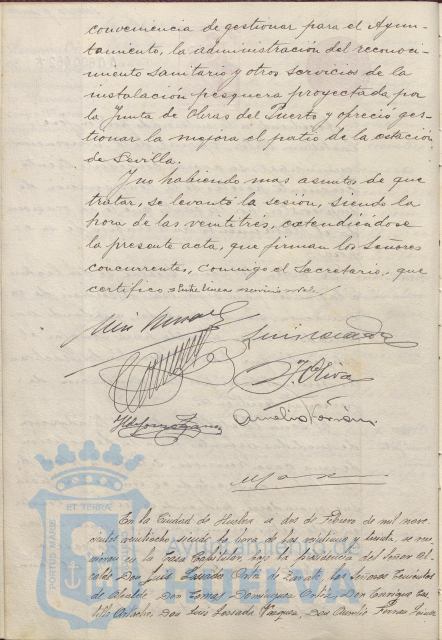 conveniencia de gestionar para el Ayun-
tamiento, la administración del reconoci-
miento sanitario y otros servicios de la
instalación pesquera proyectada por
la Junta de Obras del Puerto y ofreció ges-
tionar la mejora el patio de la estación
de Sevilla.
Y no habiendo mas asuntos de que
tratar, se levantó la sesión, siendo la
hora de las veintitrés, extendiéndose
la presente acta, que firman los Señores
concurrentes, conmigo el Secretario, que
certifico = Entre lineas =
J. Oliva
ET TERRÆ
PORTUS MARIS
Ayuntamiento de
HUELVA
En la Ciudad de Huelva a dos de Febrero de mil nove-
cientos veintiocho siendo la hora de las veintiuna y
en la Casa Capitular bajo la presidencia del Señor Al-
calde Don Luis Ortiz de Zarate, los Señores Tenientes
de Alcalde Don Tomas Dominguez Ortiz, Don Enrique
Don Luis Vazquez, Don Aurelio